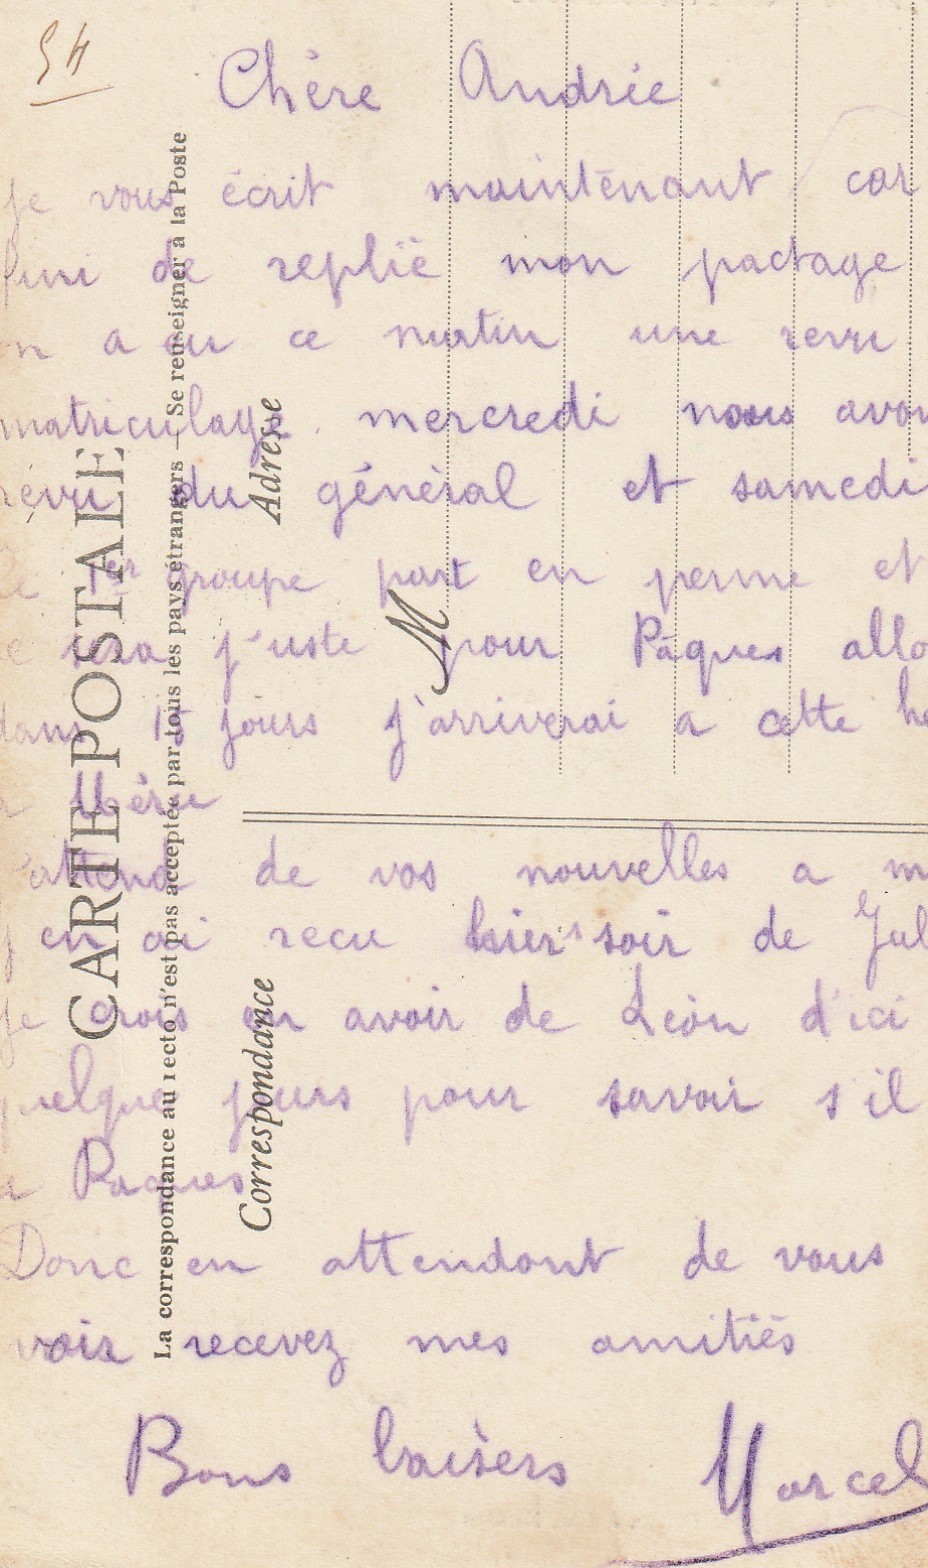 54
Chère Andrée
je vous écrit maintenant car
fini de replié mon pactage
on a eu ce matin une revu
matriculage. mercredi nous avon
révu du général et samedi
le 1er groupe part en perme et
ce sera j'uste pour Pâques allo
dans 15 jours j'arriverai a cette he
a Méru
j'attend de vos nouvelles a m
j'en ai recu hier soir de Jul
je crois en avoir de Léon d'ici
quelque jours pour savoir s'il
a Paques
Donc en attendant de vous
voir recevez mes amitiés
Bons baisers Marcel
CARTE POSTALE
La correspondance au recto n'est pas acceptée par tous les pays étrangers — Se renseigner à la Poste
Correspondance
Adresse
M